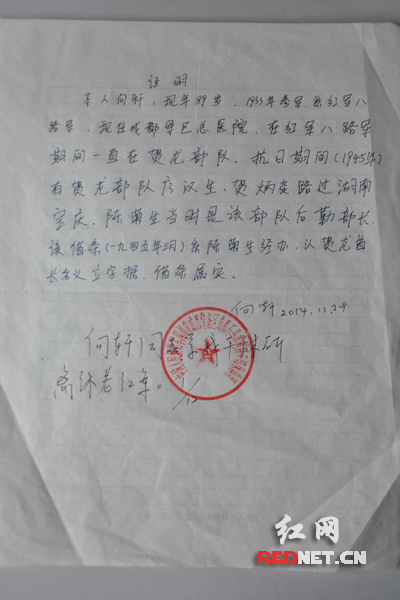 证明
本人向轩，现年89岁，1933年参军，系红军八
路军，现住成都军区总医院，在红军八路军
期间一直在贺龙部队。抗日期间(1945年)
有贺龙部队廖汉生、贺炳炎路过湖南
宝庆。陈菊生当时是该部队后勤部长，
该借条(一九四五年三月)系陈菊生经办，以贺龙首
长名义立字据，借条属实。
向轩 2014.11.29
向轩同
离休老红军。1/12
红网
REDNET.CN